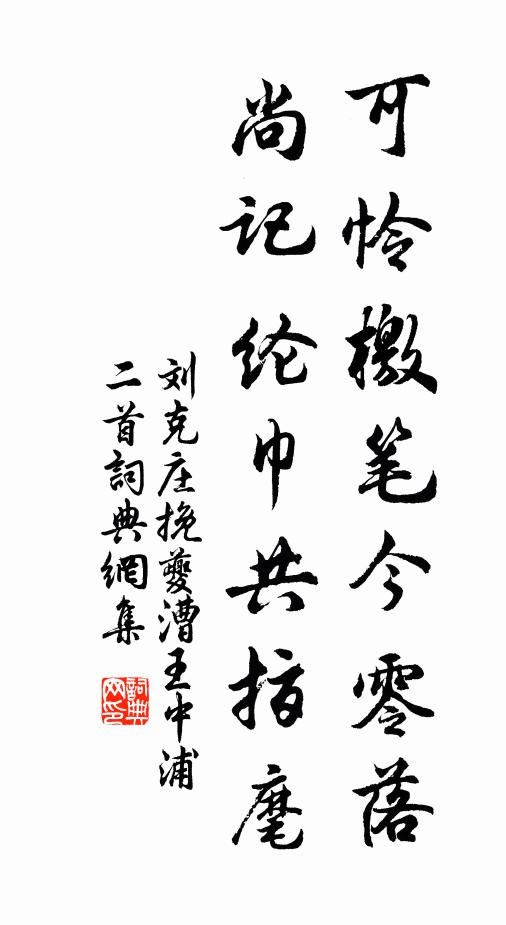 可怜檄笔今零落
尚记纶巾共指麾
刘克庄挽夔漕王中浦
二首詞典網集
詞典
网印